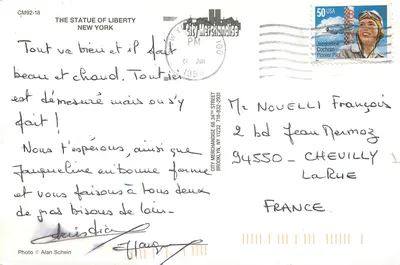 CM92-18
THE STATUE OF LIBERTY
NEW YORK
Tout va bien et il fait
beau et chaud. Tout ici
est démesuré mais on s'y
fait !
Nous t'espérons, ainsi que
Jacqueline en bonne forme
et vous faisons à tous deux
de gros bisous de loin.
Photo © Alan Schein
CITY MERCHANDISE 68 34TH STREET
BROOKLYN, NY 11232 718-832-2931
PM
50 USA
Jacqueline
Cochran
Pioneer Pilot
Mr NOVELLI François
2 bd Jean Mermoz
94550 - CHEVILLY
LaRUE
FRANCE.